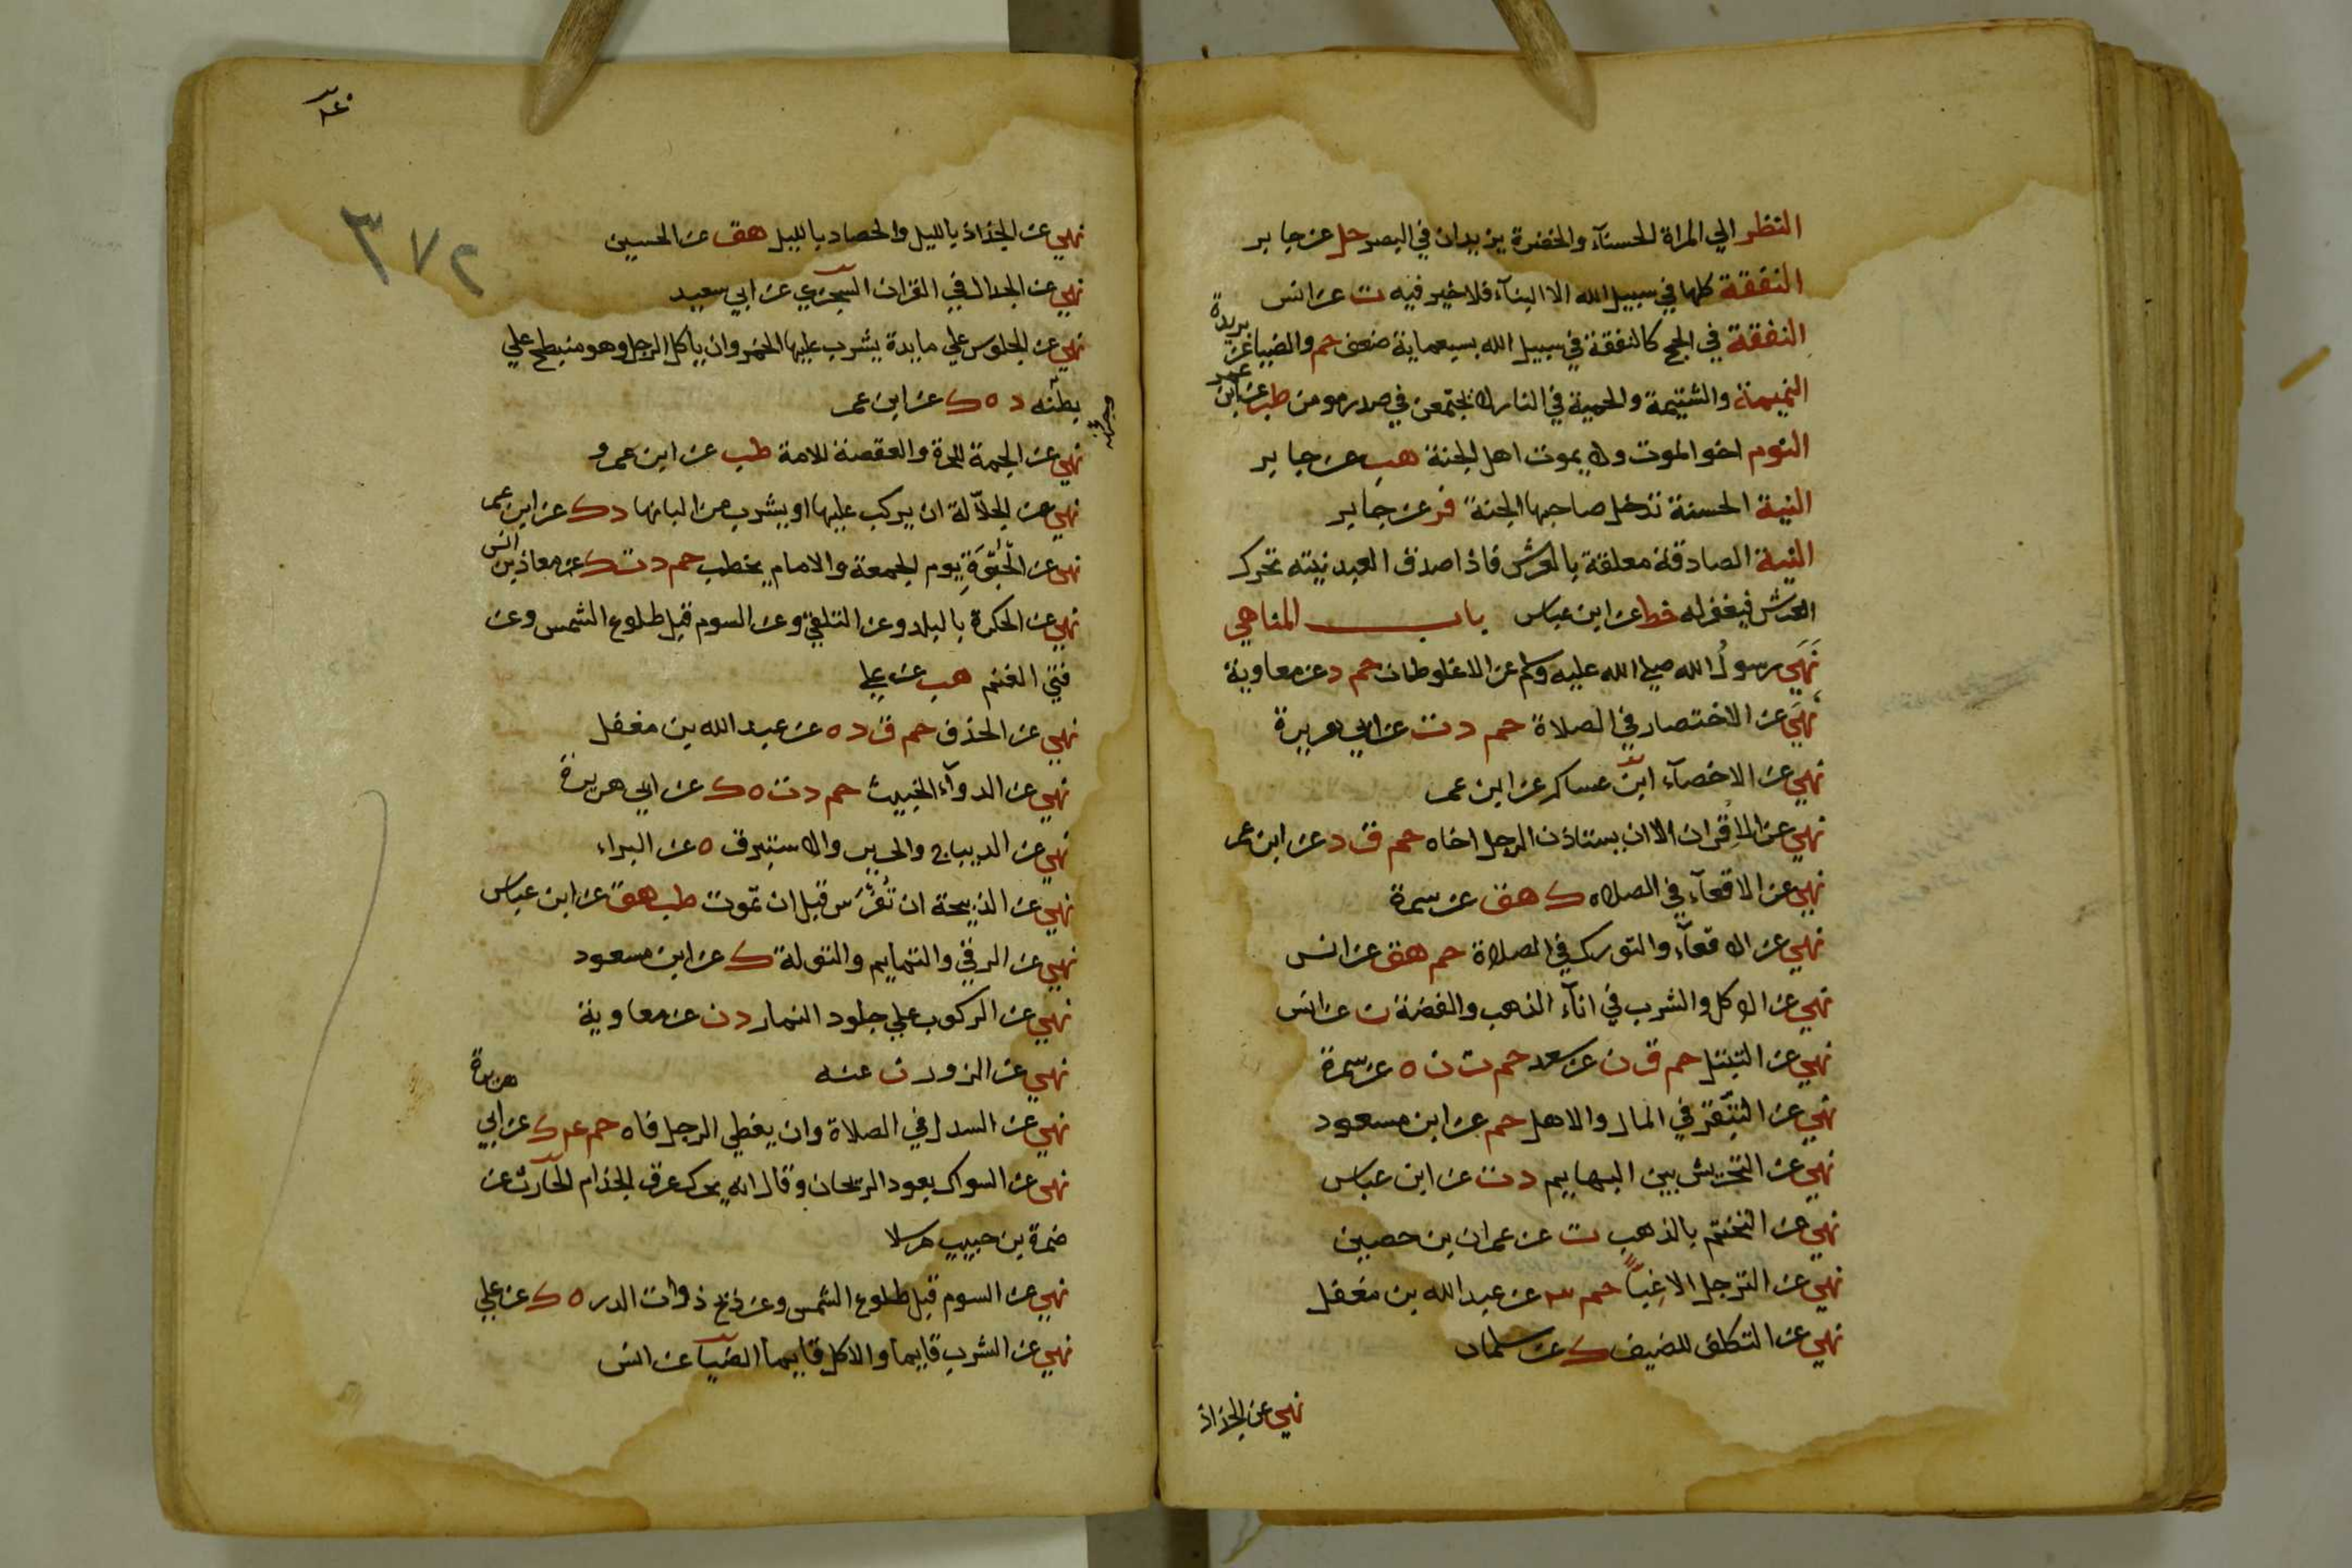 النظر الي المراة الحسنآء والخضرة يزيدان في البصر حل عن جابر
النفقة كلها في سبيل الله الا البنآء فلا خير فيه ت عن انس
النفقة في الحج كالنفقة في سبيل الله بسبعماية ضعف حم والضيا عن بريدة
النميمة والشتيمة والحمية في النار لا يجتمعن في صدر مومن طب عن ابن عمر
النوم اخو الموت ولا يموت اهل الجنة هب عن جابر
النية الحسنة تدخل صاحبها الجنة فر عن جابر
النية الصادقة معلقة بالعرش فاذا صدق العبد نيته تحرك
العرش فيغفر له خط عن ابن عباس باب المناهي
نَهَي رسولُ الله صلي الله عليه وسلم عن الاغلوطات حم د عن معاوية
نَهَي عن الاختصار في الصلاة حم د ت عن ابي هريرة
نهي عن الاخصآء ابن عساكر عن ابن عمر
نهي عن الاقران الا ان يستاذن الرجل اخاه حم ق د عن ابن عمر
نهي عن الاقعآء في الصلاه ك هق عن سمرة
نهي عن الاقعآء والتورك في الصلاة حم هق عن انس
نهي عن الاكل والشرب في انآء الذهب والفضة ن عن انس
نهي عن التبتل حم ق ن عن سعد حم ت ن ه عن سمرة
نهي عن التبقر في المال والاهل حم عن ابن مسعود
نهي عن التحريش بين البهايم د ت عن ابن عباس
نهي عن التختم بالذهب ت عن عمران بن حصين
نهي عن الترجل الا غِبًّا حم عن عبد الله بن مغفل
نهي عن التكلف للضيف ك عن سلمان
نهي عن الجذاذ
٣٧٢
نهي عن الجذاذ بالليل والحصاد بالليل هق عن الحسين
نهي عن الجدال في القران السجزي عن ابي سعيد
نهي عن الجلوس علي مايدة يشرب عليها الخمر وان ياكل الرجل وهو منبطح علي
بطنه د ه ك عن ابن عمر
نهي عن الجمة للحرة والعقصة للامة طب عن ابن عمرو
نهي عن الجلّالة ان يركب عليها او يشرب من البانها د ك عن ابن عمر
نهي عن الحُبْوَةِ يوم الجمعة والامام يخطب حم د ت ك عن معاذ بن انس
نهي عن الحكرة بالبلد وعن التلقي وعن السوم قبل طلوع الشمس وعن
قني الغنم هب عن علي
نهي عن الخذف حم ق د ه عن عبد الله بن مغفل
نهي عن الدوآء الخبيث حم د ت ه ك عن ابي هريرة
نهي عن الديباج والحرير والاستبرق ه عن البراء
نهي عن الذبيحة ان تُفْرَس قبل ان تموت طب هق عن ابن عباس
نهي عن الرقي والتمايم والتولة ك عن ابن مسعود
نهي عن الركوب علي جلود النمار د ن عن معاوية
نهي عن الزور ن عنه
نهي عن السدل في الصلاة وان يغطي الرجل فاه حم عد ك عن ابي هريرة
نهي عن السواك بعود الريحان وقال انه يحرك عرق الجذام الحارث عن
ضمرة بن حبيب مرسلا
نهي عن السوم قبل طلوع الشمس وعن ذبح ذوات الدر ه ك عن علي
نهي عن الشرب قايما والاكل قايما الضيآ عن انس